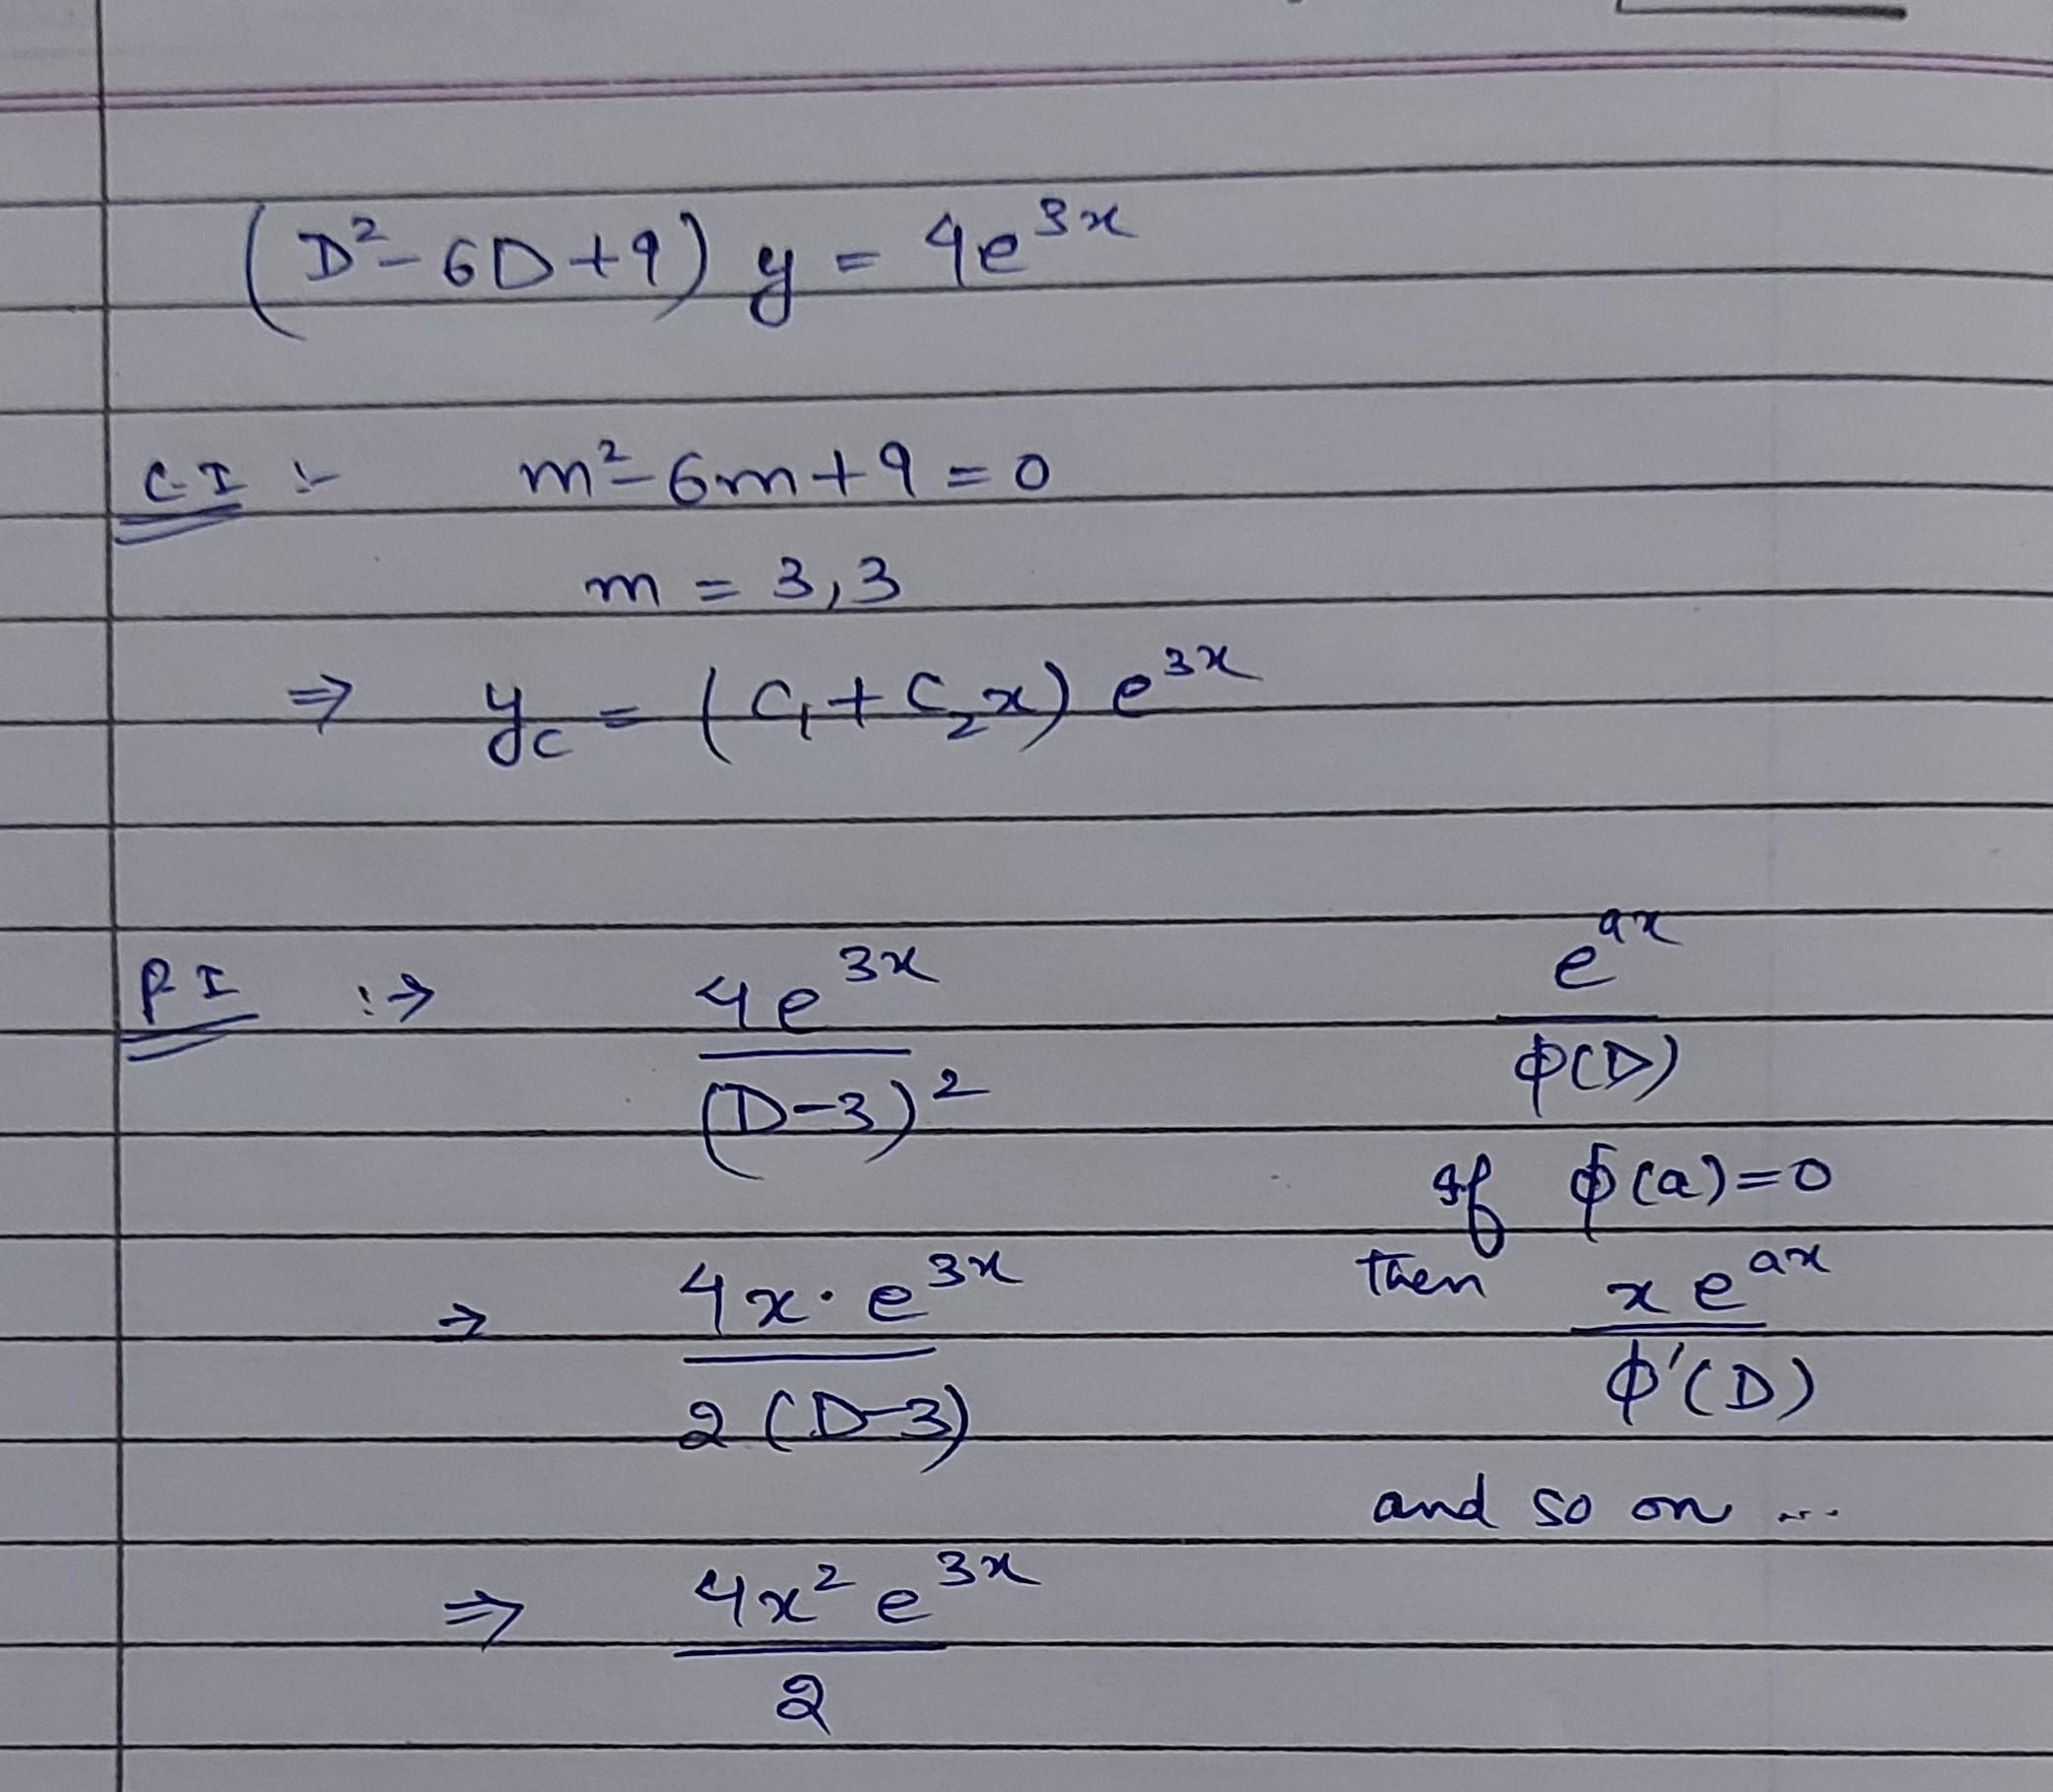 (D²-6D+9) y = 4e³ˣ
C.I :- m²-6m+9=0
m = 3,3
⇒ y_c = (C₁+C₂x) e³ˣ
P.I :→ 4e³ˣ / (D-3)²
e^{ax} / ϕ(D)
If ϕ(a)=0
then x e^{ax} / ϕ'(D)
→ 4x·e³ˣ / 2(D-3)
and so on ...
⇒ 4x² e³ˣ / 2